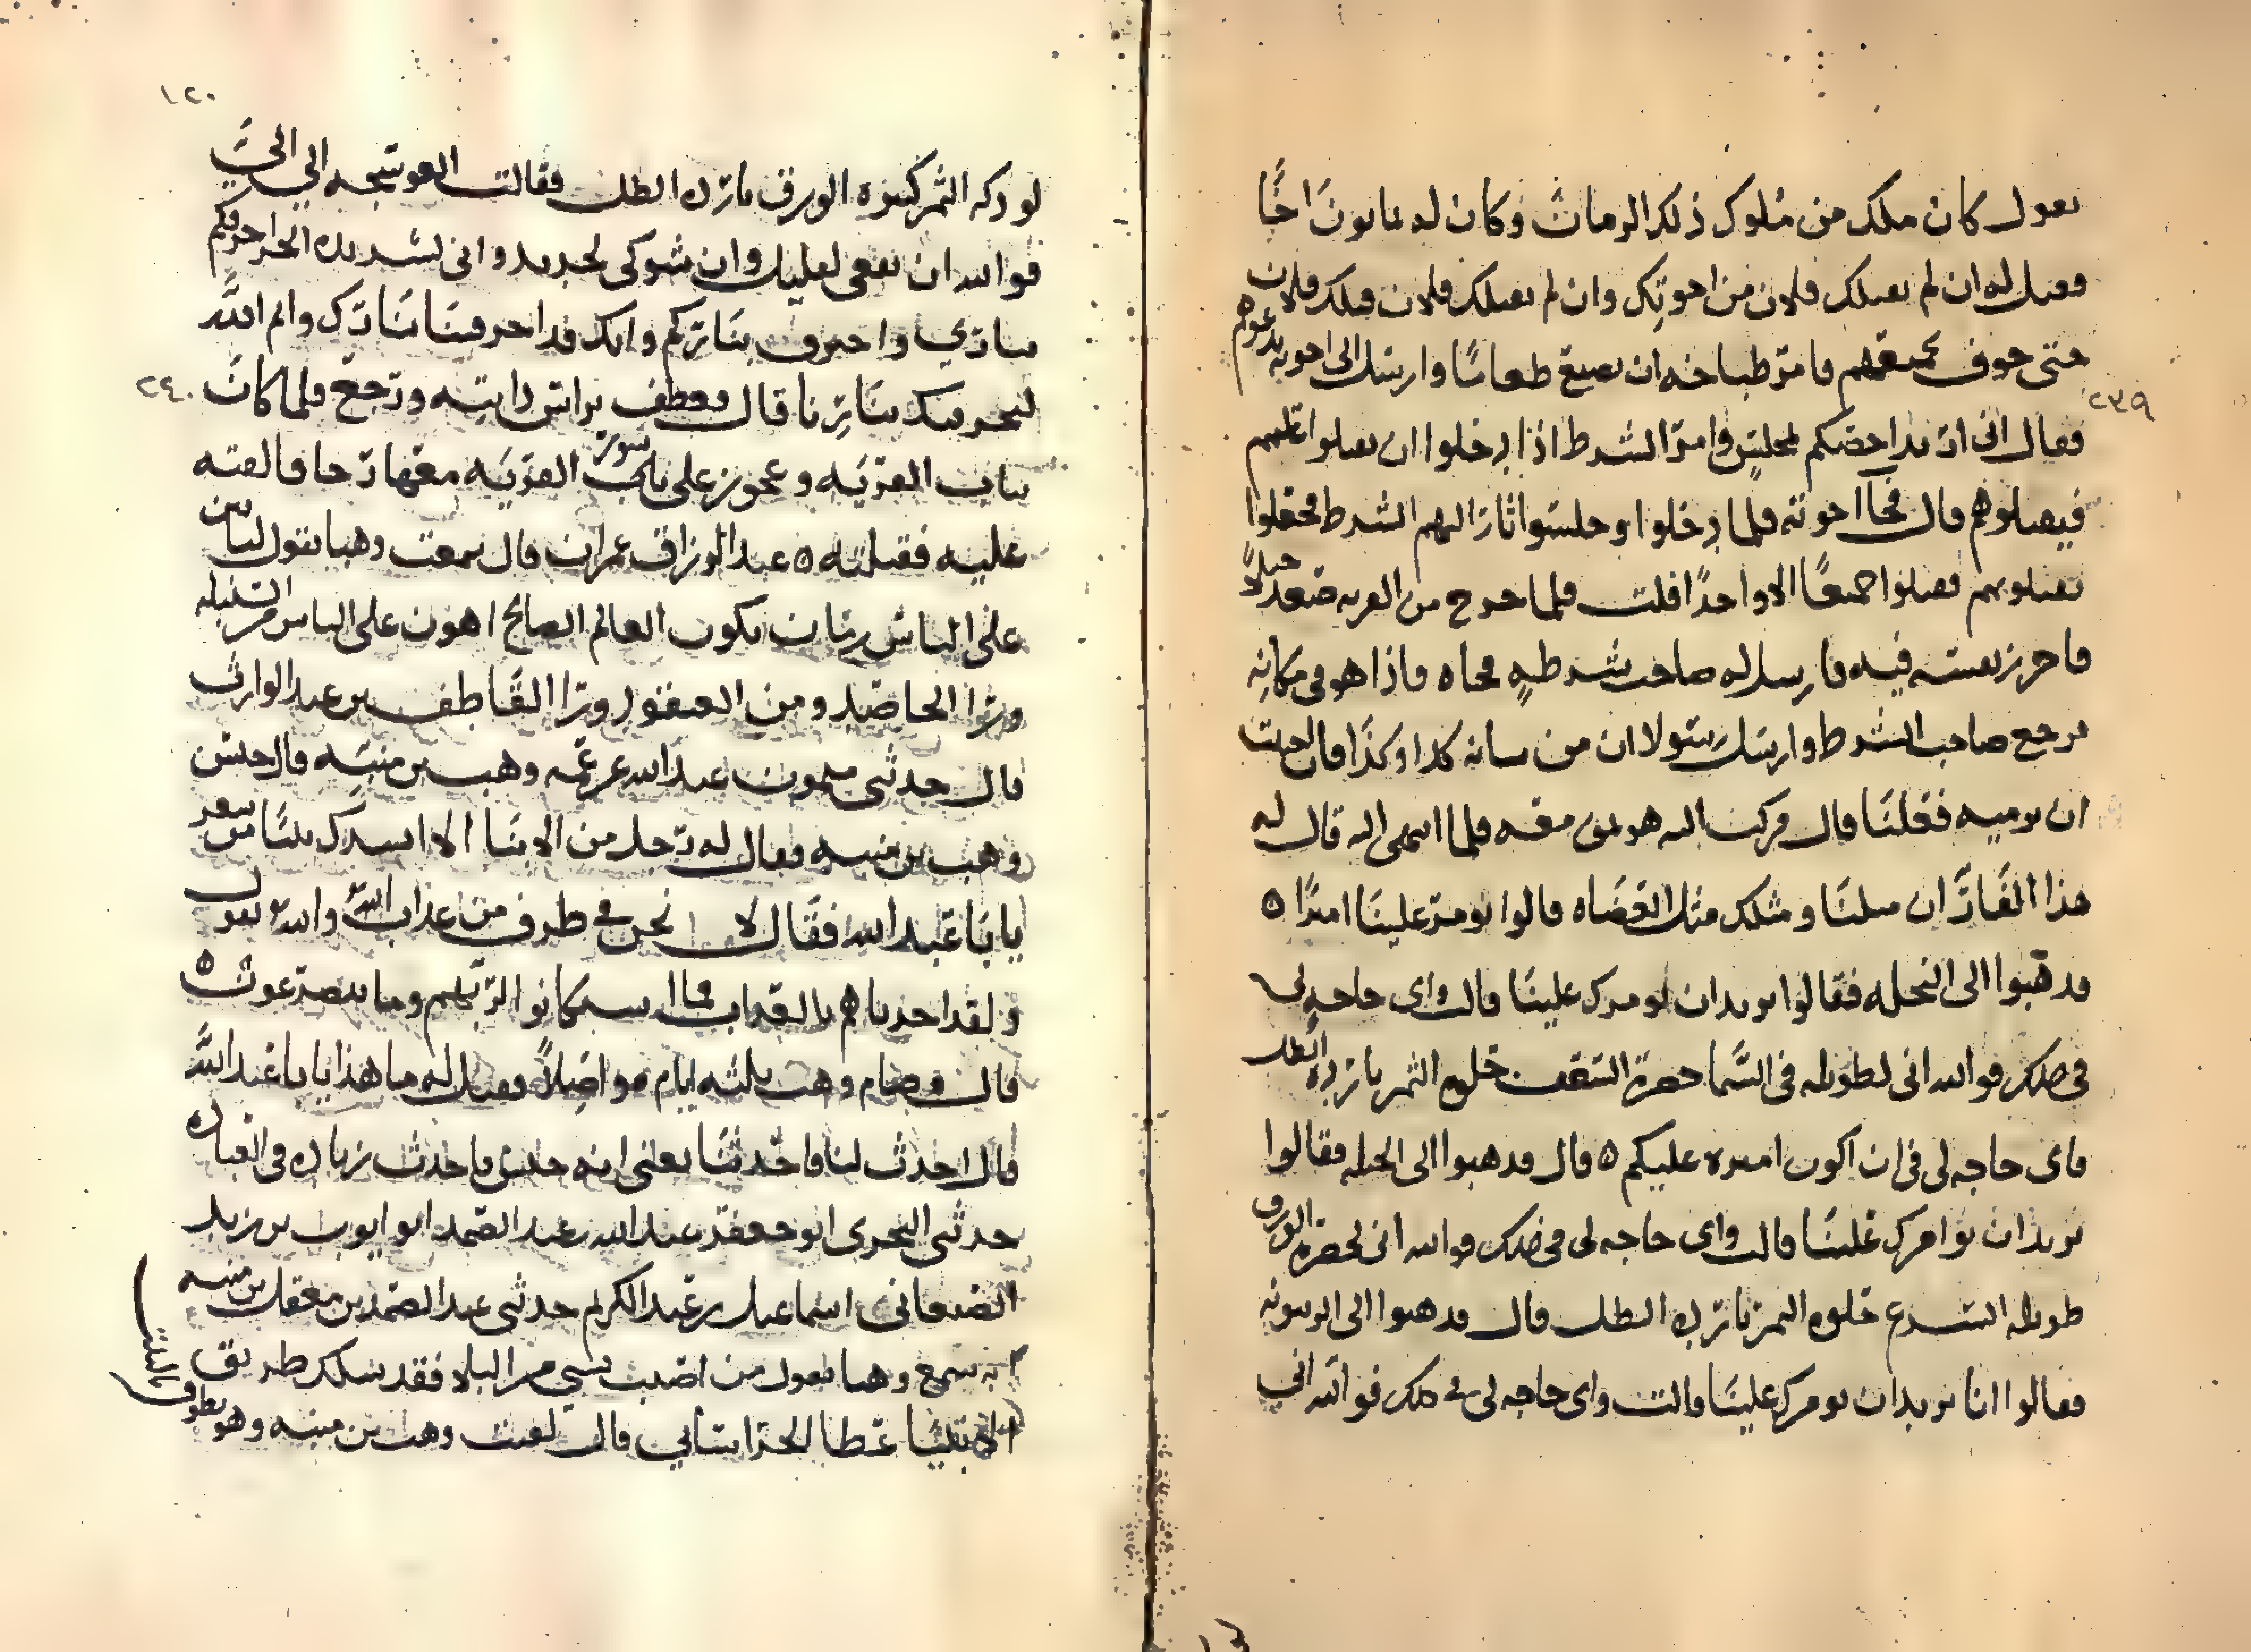 ٢٣٩
يقول كان ملك من ملوك ذلك الزمان وكان له ثمانون اخًا
فقيل له ان لم يقتلك فلان من اخوتك وان لم يقتلك فلان قتلك فلان
حتى خوف بجميعهم فامر طباخه ان يصنع طعاما وارسل الى اخوته يدعوهم
فقال اني اريد احضكم لمجلس وامر الشرط اذا دخلوا ان يقبلوا عليهم
فيقتلوهم قال فجاا خوته فلما دخلوا وجلسوا اشار اليهم الشرط فجعلوا
يقتلونهم فقتلوا جميعًا الا واحدًا افلت فلما خرج من القرية صعد جبلا
فاحرز نفسه فيه فارسل له صاحب شرطه فجاه فاذا هو في مكانه
فرجع صاحب الشرط وارسل رسولا ان من شانه كذا وكذا قال احببت
ان نرميه فعلنا قال فركب اليه هو ومن معه فلما انتهى اليه قال له
هذا الفار ان مثلنا ومثلك مثل العضاه قالوا نومر علينا اميرًا ه
فذهبوا الى النخله فقالوا نريد ان نومرك علينا قالت واي حاجه لي
في ذلك فوالله اني لطويله في السما خضرة السعف حلوه الثمر بارده الظل
فاي حاجه لي في ان اكون اميره عليكم ه قال فذهبوا الى الحبله فقالوا
نريد ان نوامرك علينا قالت واي حاجه لي في ذلك فوالله اني لخضره الورق
طويله الشرع حلوه الثمر بارده الظل قال فذهبوا الى الزيتونه
فقالوا انا نريد ان نومرك علينا قالت واي حاجه لي في ذلك فوالله اني
١٢٠
الثمر كثيره الورق بارده الظل فقالت العوسجه الي الي
فوالله ان نفعي لقليل وان شوكي لحديد واني لشديده الحر احرقكم
بناري واحترف بناركم وانك قد احرقتنا بنارك وايم الله
لنحرقنك بنارنا قال فعطف براس دابته ورجع فلما كان
٢٤٠
بباب القرية وعجوز على سور تلك القرية معها رحا فالقته
عليه فقتلته ه عبد الرزاق عمران قال سمعت وهبا يقول لياتين
على الناس زمان يكون العالم الصالح اهون على الناس من السنبله
ورا الحاصد ومن العنقود ورا القاطف بن عبد الوارث
قال حدثني ميمون عبد الله عن عمه وهب بن منبه قال حبس
وهب بن منبه فقال له رجل من الابنا الا انشدك بيتا من شعر
يابا عبد الله فقال لا نحن في طرف من عذاب الله والله يقول
ولقد اخذناهم بالعذاب فما استكانوا لربهم وما يتضرعون ه
قال وصام وهب ثلثه ايام مواصلاً فقيل له ما هذا يابا عبد الله
قال احدث لنا فاحدثنا يعني انه حبس فاحدث زياده في العباده
حدثني البحري ابو جعفر عبد الله بن عبد الصمد ابو ايوب بن يزيد
الصنعاني اسماعيل بن عبد الكريم حدثني عبد الصمد بن معقل بن منبه
انه سمع وهبا يقول من اصيب بشي من البلا فقد سلك طريق
الانبيا عطا الخراساني قال لقيت وهب بن منبه وهو يطوف
بالبيت